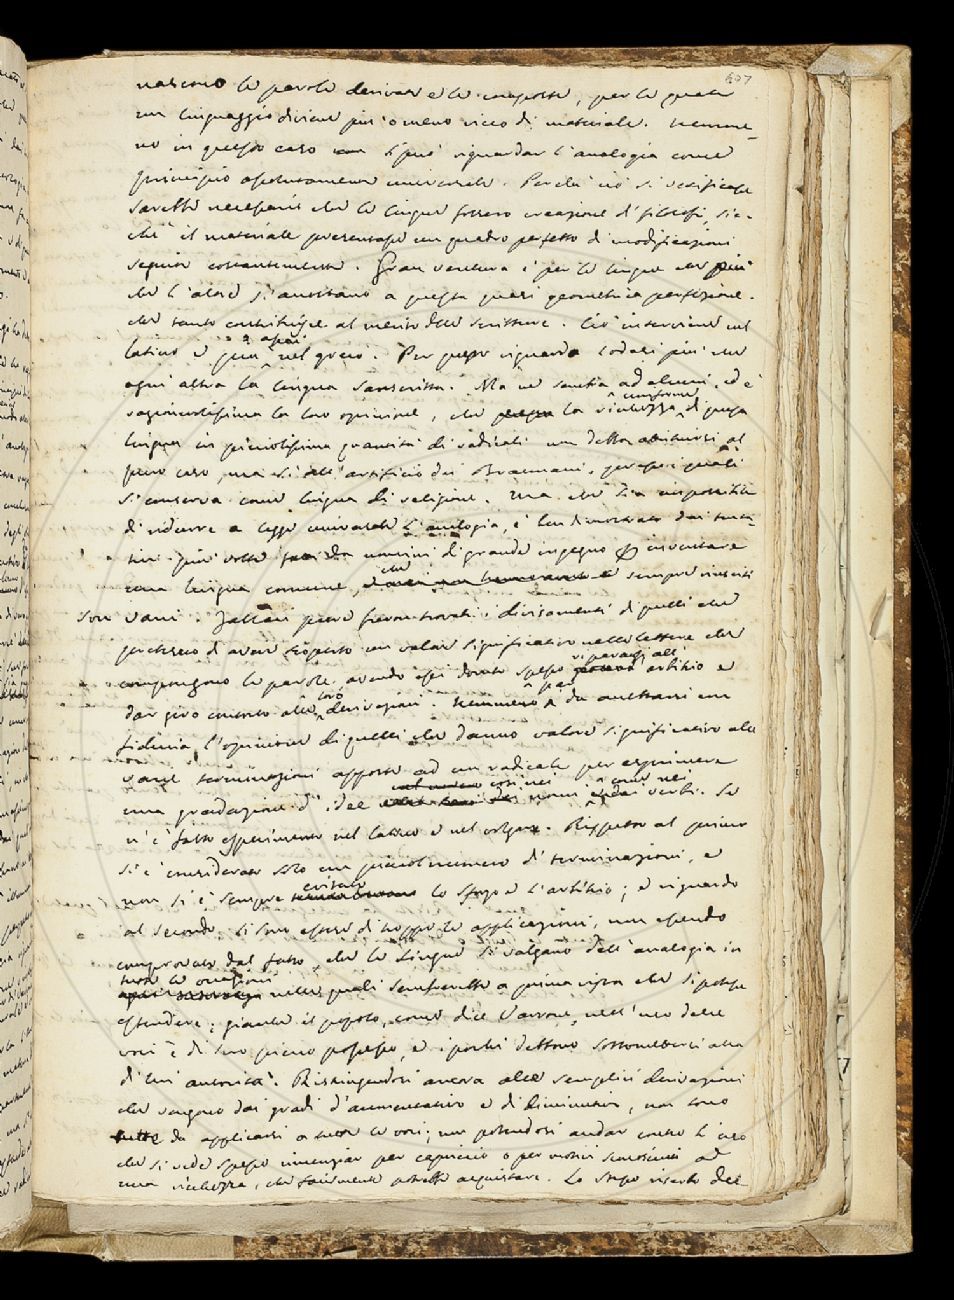 607
nascono le parole derivate e le composte, per le quali
un linguaggio diviene più o meno ricco di materiale. Nemme-
no in questo caso si può riguardar l'analogia come
principio assolutamente universale. Perché ciò si verificasse
sarebbe necessario che le lingue fossero creazione di filosofi, sic-
ché il materiale presentasse un quadro perfetto di modificazioni
seguite costantemente. Gran ventura è per le lingue che più
che l'altre s'accostano a questa quasi geometrica perfezione.
che tanto contribuisce al merito delle scritture. Ciò interviene nel
latino e più assai nel greco. Per questo riguardo lodasi più che
ogni altra la lingua sanscritta. Ma ne sembra ad alcuni, ed è
ragionatissima la loro opinione, che la ricchezza uniforme di questa
lingua in piccolissima quantità di radicali non debba attribuirsi al
puro caso, ma sì all'artificio dei Bracmani, presso i quali
si conserva come lingua di religione. Ma che sia impossibile
di ridurre a legge universale l'analogia, è ben dimostrato dai tenta-
tivi più volte fatti da uomini di grande ingegno d'inventare
una lingua comune, che sempre riusciti
son vani. Fallaci pure furon trovati i divisamenti di quelli che
pretesero di avere scoperto un valor significativo nelle lettere che
compongono le parole, avendo essi dovuto spesso ripararsi all' arbitrio e
dar giro contorto alle loro derivazioni. Nemmeno è da accettarsi con
fiducia l'opinione di quelli che danno valore significativo alle
varie terminazioni apposte ad un radicale per esprimere
una gradazione d'idee così nei nomi come nei verbi. Se
n'è fatto esperimento nel latino e nel volgare. Rispetto al primo
si è considerato solo un piccol numero di terminazioni, e
non si è sempre evitato lo sforzo e l'arbitrio; e riguardo
al secondo si son estese di troppo le applicazioni, non essendo
comprovato dal fatto, che le lingue si valgano dell'analogia in
tutte le occasioni nelle quali sembrerebbe a prima vista che si potesse
estendere; giacché il popolo, come dice Varrone, nell'uso delle
voci è di suo pieno possesso, e i pochi debbono sottomettersi alla
di lui autorità. Ristringendosi ancora alle semplici derivazioni
che vengono dai gradi d'aumentativo e di diminutivo, non sono
da applicarsi a tutte le voci; non potendosi andar contro l'uso
che si vede spesso rinunziar per capriccio o per motivi sconosciuti ad
una ricchezza, che facilmente potrebbe acquistare. Lo stesso dicasi del